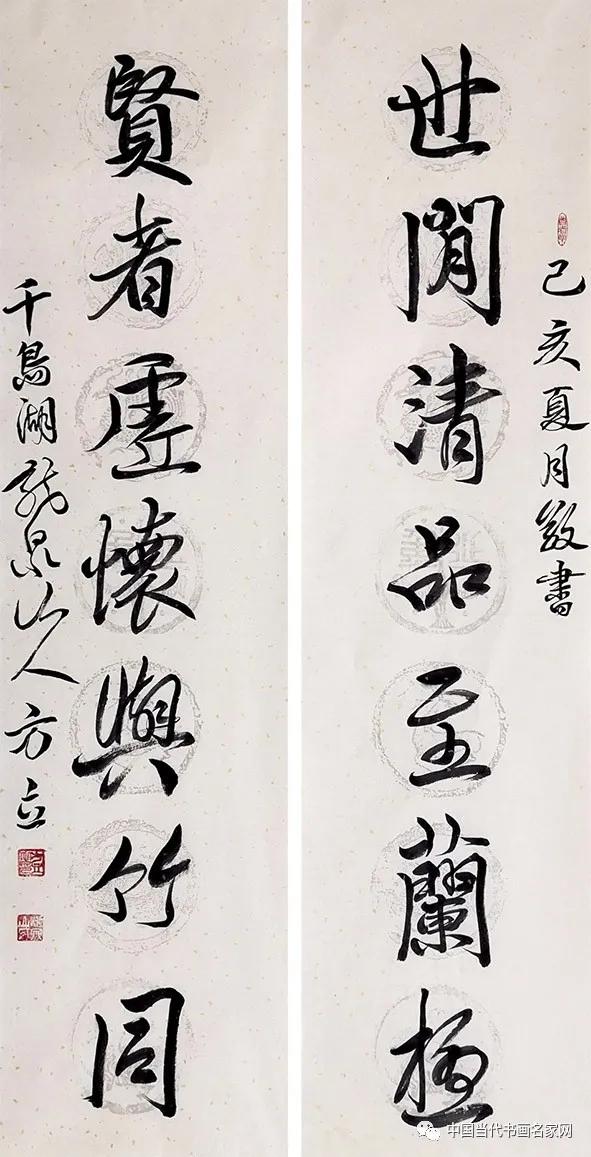 己亥夏月敬書
世閒清品至蘭極
賢者虛懷與竹同
千島湖龍泉山人方立
中国当代书画名家网